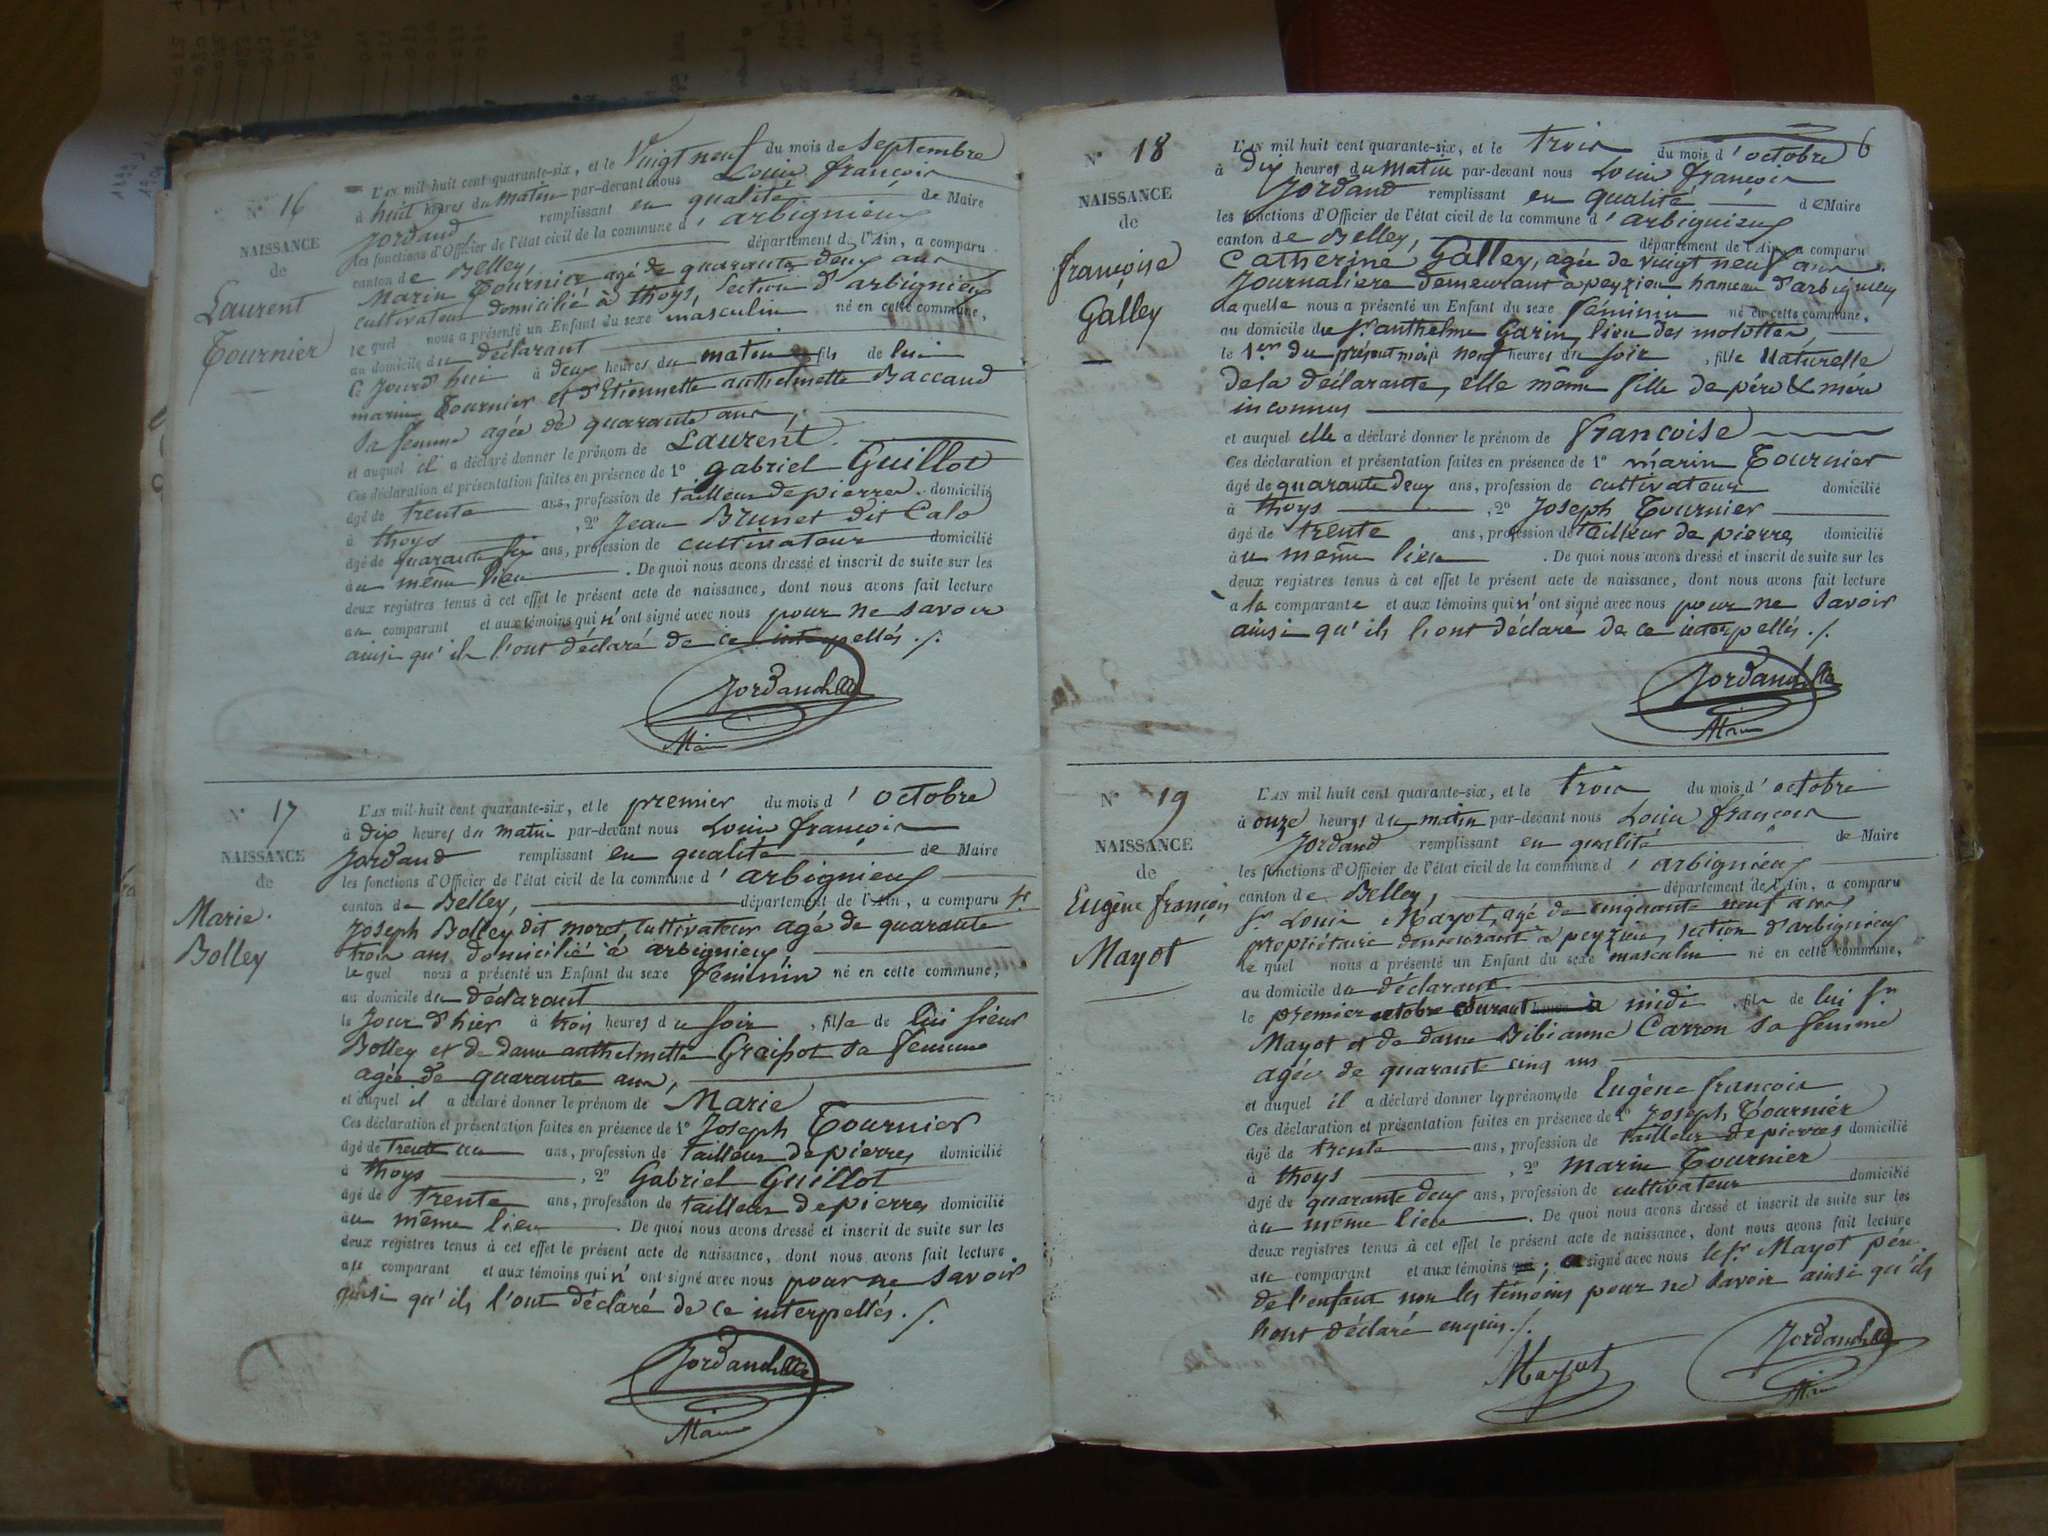 N° 16
NAISSANCE
de
Laurent
Tournier
L'AN mil huit cent quarante-six, et le Vingt neuf du mois de Septembre
à huit heures du matin par-devant nous Louis françois
Jordand remplissant en qualité de Maire
les fonctions d'Officier de l'état civil de la commune d' arbignieux
canton de Belley, département de l'Ain, a comparu
Marin Tournier agé de quarante deux ans
cultivateur domicilié à thoys, section d'arbignieu
lequel nous a présenté un Enfant du sexe masculin né en cette commune,
au domicile du déclarant
le jourd'hui à deux heures du matin fils de lui
marin Tournier et d'Etiennette anthelmette Baccand
Sa femme agée de quarante ans,
et auquel il a déclaré donner le prénom de Laurent.
Ces déclaration et présentation faites en présence de 1° gabriel Guillot
âgé de trente ans, profession de tailleur de pierres domicilié
à thoys , 2° Jean Brunet dit Calo
âgé de quarante six ans, profession de cultivateur domicilié
au même lieu . De quoi nous avons dressé et inscrit de suite sur les
deux registres tenus à cet effet le présent acte de naissance, dont nous avons fait lecture
au comparant et aux témoins qui n'ont signé avec nous pour ne savoir
ainsi qu'ils l'ont déclaré de ce interpellés ./.
Maire
N° 17
NAISSANCE
de
Marie
Bolley
L'AN mil-huit cent quarante-six, et le premier du mois d' octobre
à dix heures du matin par-devant nous Louis françois
Jordand remplissant en qualité de Maire
les fonctions d'Officier de l'état civil de la commune d' arbignieux
canton de Belley, département de l'Ain, a comparu Sr
Joseph Bolley dit moret, Cultivateur agé de quarante
trois ans domicilié à arbignieu,
lequel nous a présenté un Enfant du sexe féminin né en cette commune,
au domicile du déclarant
le jour d'hier à trois heures du soir , fille de lui sieur
Bolley et de dame anthelmette Graissot sa femme
agée de quarante ans,
et auquel il a déclaré donner le prénom de Marie
Ces déclaration et présentation faites en présence de 1° Joseph Tournier
âgé de trente un ans, profession de tailleur de pierres domicilié
à thoys , 2° Gabriel Guillot
âgé de trente ans, profession de tailleur de pierres domicilié
au même lieu . De quoi nous avons dressé et inscrit de suite sur les
deux registres tenus à cet effet le présent acte de naissance, dont nous avons fait lecture
au comparant et aux témoins qui n' ont signé avec nous pour ne savoir
ainsi qu'ils l'ont déclaré de ce interpellés ./.
Maire
6
N° 18
NAISSANCE
de
françoise
Galley
L'AN mil huit cent quarante-six, et le trois du mois d' octobre
à dix heures du matin par-devant nous Louis françois
Jordand remplissant en qualité de Maire
les fonctions d'Officier de l'état civil de la commune d' arbignieux
canton de Belley, département de l'Ain, a comparu
Catherine Galley, agée de vingt neuf ans
Journalière demeurant à peyzieu hameau d'arbignieu
laquelle nous a présenté un Enfant du sexe féminin né en cette commune,
au domicile du sr anthelme Garin, lieu des molottes,
le 1er du présent mois à neuf heures du soir , fille Naturelle
de la déclarante, elle même fille de père & mère
inconnus
et auquel elle a déclaré donner le prénom de françoise
Ces déclaration et présentation faites en présence de 1° marin Tournier
âgé de quarante deux ans, profession de cultivateur domicilié
à thoys , 2° Joseph Tournier
âgé de trente ans, profession de tailleur de pierres domicilié
au même lieu . De quoi nous avons dressé et inscrit de suite sur les
deux registres tenus à cet effet le présent acte de naissance, dont nous avons fait lecture
à la comparante et aux témoins qui n'ont signé avec nous pour ne savoir
ainsi qu'ils l'ont déclaré de ce interpellés ./.
Maire
N° 19
NAISSANCE
de
Eugène françois
Mayot
L'AN mil huit cent quarante-six, et le trois du mois d' octobre
à onze heures du matin par-devant nous Louis françois
Jordand remplissant en qualité de Maire
les fonctions d'Officier de l'état civil de la commune d' arbignieux
canton de Belley, département de l'Ain, a comparu
sr Louis Mayot, agé de cinquante neuf ans
propriétaire demeurant à peyzieu, section d'arbignieu
lequel nous a présenté un Enfant du sexe masculin né en cette commune,
au domicile du déclarant
le premier octobre courant heures à midi , fils de lui sr
Mayot et de dame Bibianne Carron sa femme
agée de quarante cinq ans
et auquel il a déclaré donner le prénom de Eugène françois
Ces déclaration et présentation faites en présence de 1° Joseph Tournier
âgé de trente ans, profession de tailleur de pierres domicilié
à thoys , 2° marin Tournier
âgé de quarante deux ans, profession de cultivateur domicilié
au même lieu . De quoi nous avons dressé et inscrit de suite sur les
deux registres tenus à cet effet le présent acte de naissance, dont nous avons fait lecture
au comparant et aux témoins ; a signé avec nous le sr Mayot père
de l'enfant non les témoins pour ne savoir ainsi qu'ils
l'ont déclaré enquis ./.
Mayot
Maire